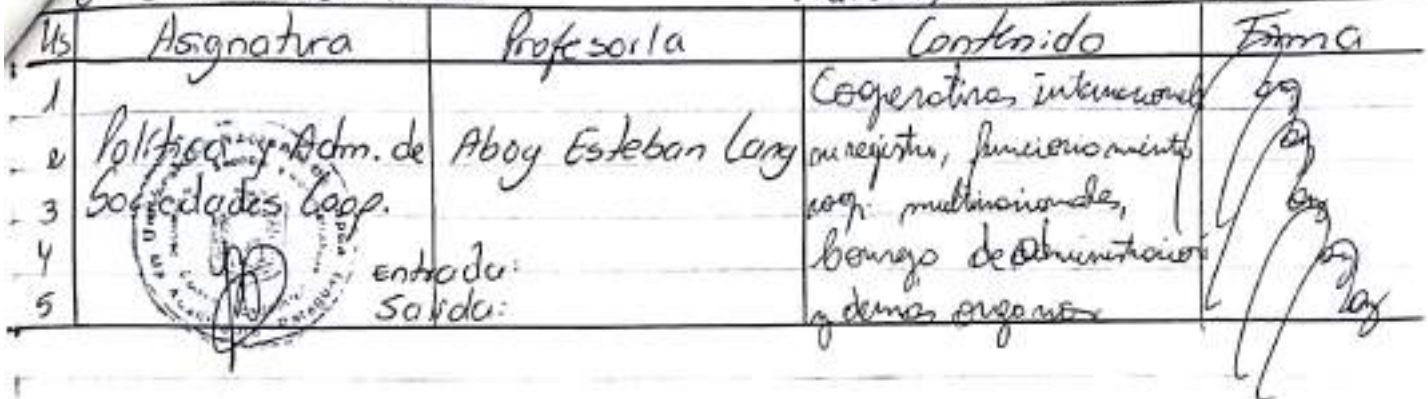 Hs Asignatura Profesor/a Contenido Firma
1 Cooperativas internacional
2 Política y Adm. de Abog Esteban Lang su registro, funcionamiento
3 Sociedades Coop. coop. multinacionales,
4 Entrada: Consejo de administracion
5 Salida: y demás organos